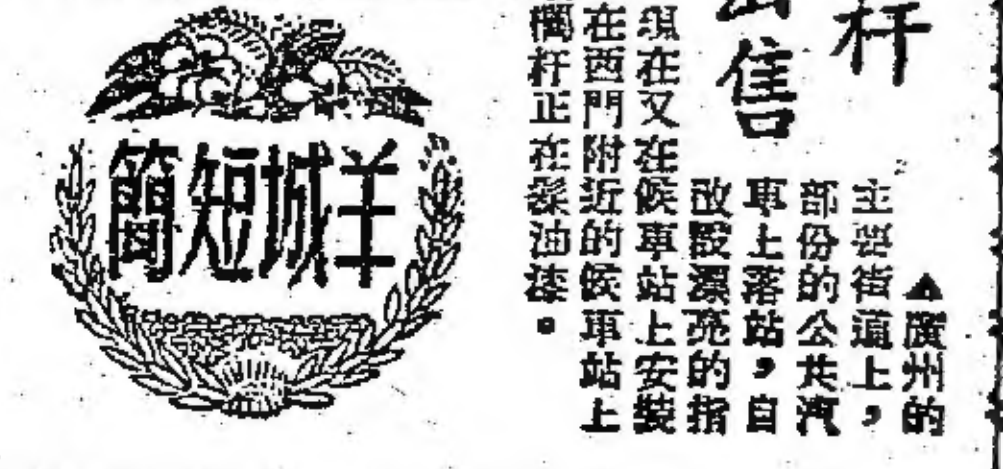 杆
售
▲廣州的
主要街道上，
部份的公共汽
車上落站，自
改設漂亮的指
現在又在候車站上安裝
在西門附近的候車站上
欄杆正在髹油漆。
羊城短簡